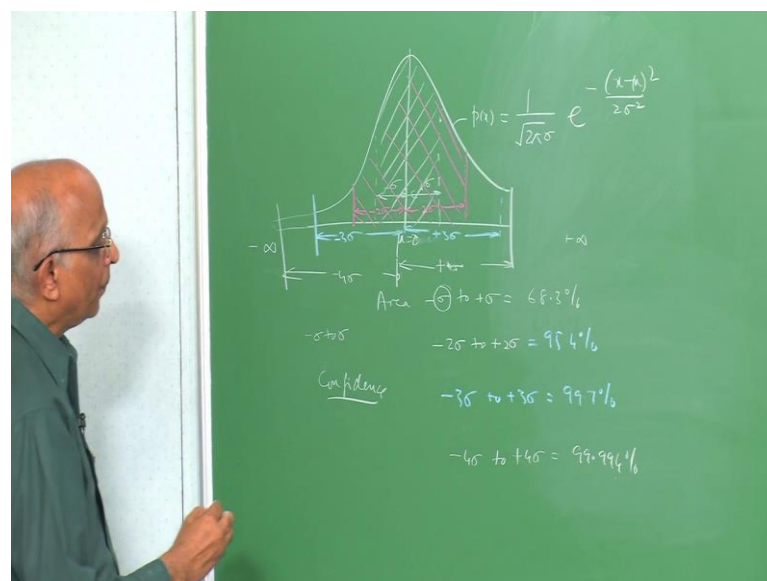 p(x) = 1/√2πσ e^-(x-μ)²/2σ²
-σ σ
-2σ 2σ
-3σ +3σ
-∞ +∞
-4σ
Area -σ to +σ = 68.3%
-σ to σ
-2σ to +2σ = 95.4%
Confidence
-3σ to +3σ = 99.7%
-4σ to +4σ = 99.994%